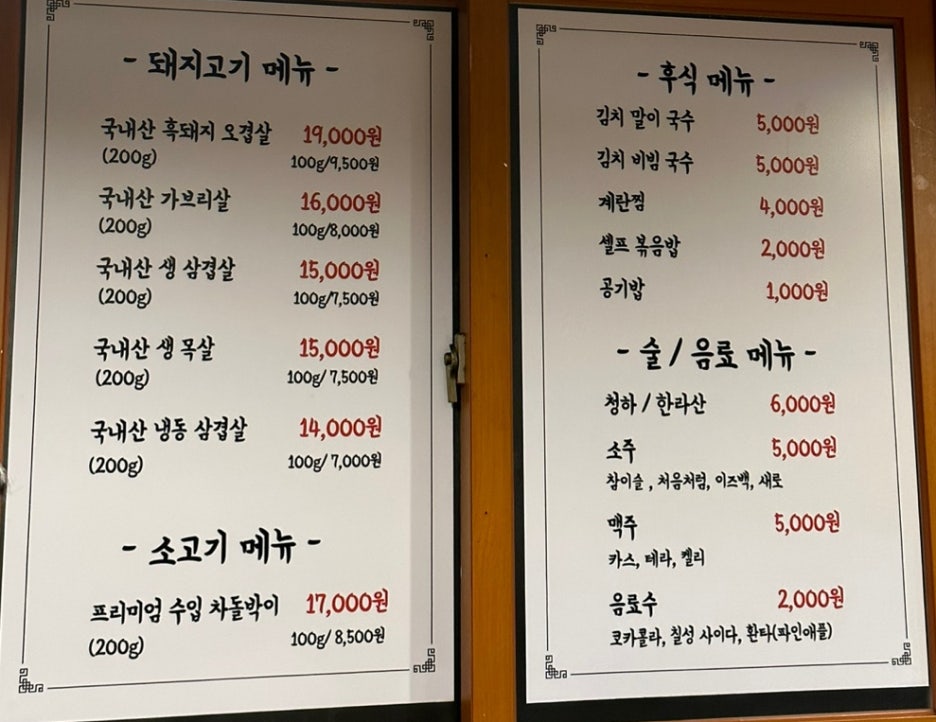 - 돼지고기 메뉴 -
국내산 흑돼지 오겹살 19,000원
(200g) 100g/9,500원
국내산 가브리살 16,000원
(200g) 100g/8,000원
국내산 생 삼겹살 15,000원
(200g) 100g/7,500원
국내산 생 목살 15,000원
(200g) 100g/ 7,500원
국내산 냉동 삼겹살 14,000원
(200g) 100g/ 7,000원
- 소고기 메뉴 -
프리미엄 수입 차돌박이 17,000원
(200g) 100g/ 8,500원
- 후식 메뉴 -
김치 말이 국수 5,000원
김치 비빔 국수 5,000원
계란찜 4,000원
셀프 볶음밥 2,000원
공기밥 1,000원
- 술 / 음료 메뉴 -
청하 / 한라산 6,000원
소주 5,000원
참이슬 , 처음처럼, 이즈백, 새로
맥주 5,000원
카스, 테라, 켈리
음료수 2,000원
코카콜라, 칠성 사이다, 환타(파인애플)